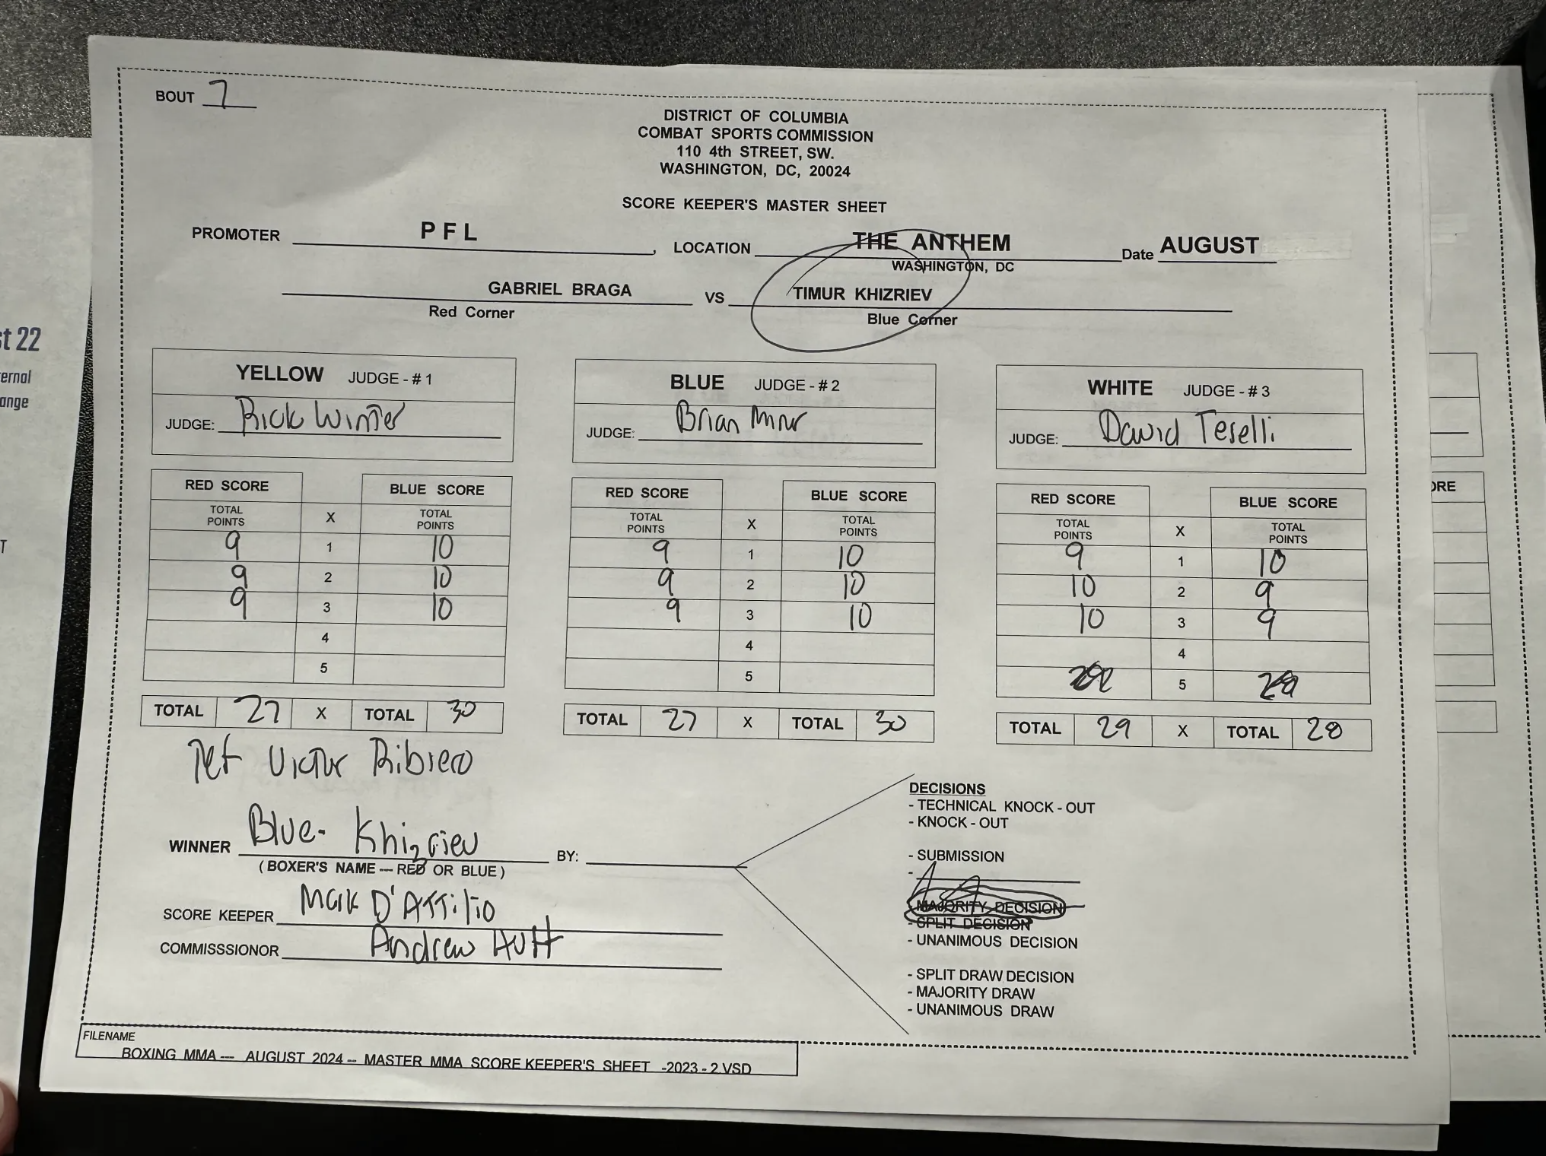 BOUT 7
DISTRICT OF COLUMBIA
COMBAT SPORTS COMMISSION
110 4th STREET, SW.
WASHINGTON, DC, 20024
SCORE KEEPER'S MASTER SHEET
PROMOTER PFL, LOCATION THE ANTHEM Date AUGUST
WASHINGTON, DC
GABRIEL BRAGA VS TIMUR KHIZRIEV
Red Corner Blue Corner
YELLOW JUDGE - # 1 BLUE JUDGE - # 2 WHITE JUDGE - # 3
JUDGE: Rick Winter JUDGE: Brian JUDGE: David Teselli
RED SCORE BLUE SCORE RED SCORE BLUE SCORE RED SCORE BLUE SCORE
TOTAL POINTS X TOTAL POINTS TOTAL POINTS X TOTAL POINTS TOTAL POINTS X TOTAL POINTS
9 1 10 9 1 10 9 1 10
9 2 10 9 2 10 10 2 9
9 3 10 9 3 10 10 3 9
4 4 4
5 5 5
TOTAL 27 X TOTAL 30 TOTAL 27 X TOTAL 30 TOTAL 29 X TOTAL 28
Ref Victor Ribiero
DECISIONS
- TECHNICAL KNOCK - OUT
- KNOCK - OUT
- SUBMISSION
-
MAJORITY DECISION
- SPLIT DECISION
- UNANIMOUS DECISION
- SPLIT DRAW DECISION
- MAJORITY DRAW
- UNANIMOUS DRAW
WINNER Blue- Khizriev BY:
( BOXER'S NAME --- RED OR BLUE )
SCORE KEEPER Mark D'Attilio
COMMISSSIONOR Andrew Huff
FILENAME
BOXING MMA --- AUGUST 2024 -- MASTER MMA SCORE KEEPER'S SHEET -2023 - 2 VSD
st 22
ernal
ange
T
ORE